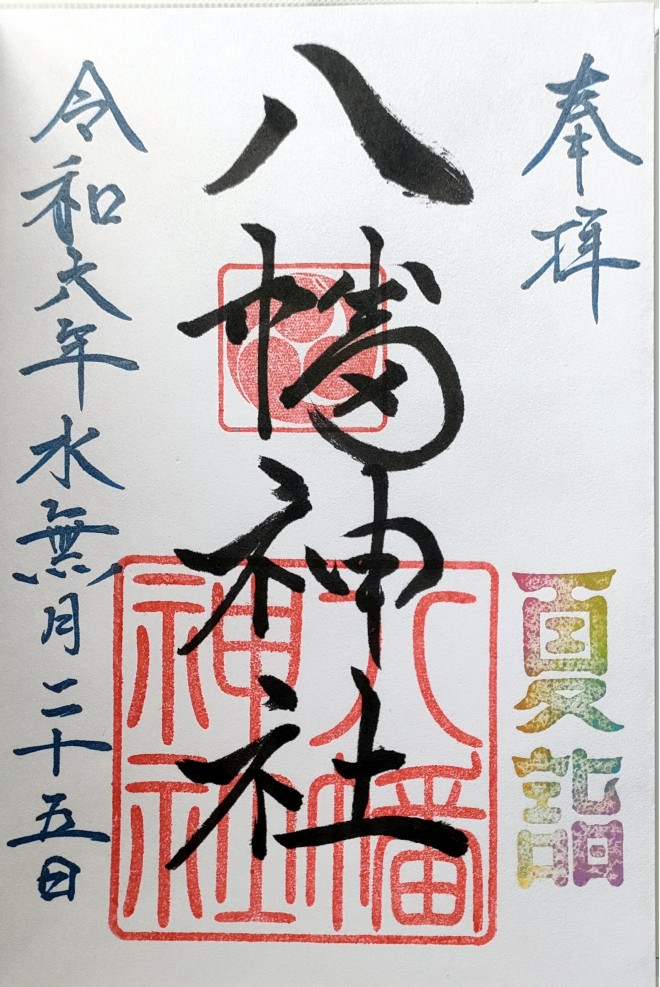 奉拝
夏詣
八幡神社
八幡
神社
令和六年水無月二十五日